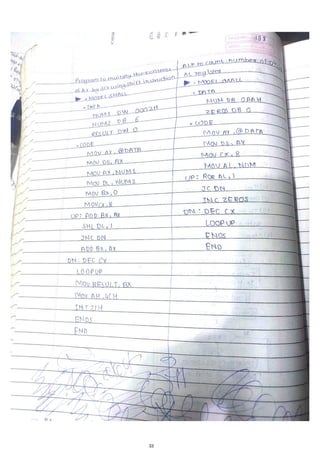 Program to multiply the contents
of AX by 6 using shift instruction
▶ .MODEL SMALL
.DATA
NUM1 DW 0002H
NUM2 DB 6
RESULT DW 0
.CODE
MOV AX, @DATA
MOV DS, AX
MOV AX, NUM1
MOV DL, NUM2
MOV BX, 0
MOV CX, 8
UP: ADD BX, BX
SHL DL, 1
JNC DN
ADD BX, AX
DN: DEC CX
LOOP UP
MOV RESULT, BX
MOV AH, 4CH
INT 21H
ENDS
END
ALP to count number of
AL register
▶ .MODEL SMALL
.DATA
NUM DB 0AAH
ZEROS DB 0
.CODE
MOV AX, @DATA
MOV DS, AX
MOV CX, 8
MOV AL, NUM
UP: ROR AL, 1
JC DN
INC ZEROS
DN: DEC CX
LOOP UP
ENDS
END